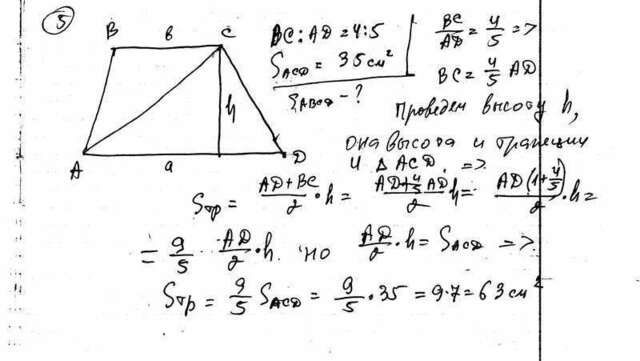 5
B b C
h
A a D
BC:AD=4:5
S_ACD = 35 см²
S_ABCD - ?
BC/AD = 4/5 =>
BC = 4/5 AD
Проведем высоту h,
она высота и трапеции
и Δ ACD. =>
Sтр = (AD+BC)/2 · h = (AD+4/5 AD)/2 h = AD(1+4/5)/2 · h =
= 9/5 AD/2 · h. но AD/2 · h = S_ACD =>
Sтр = 9/5 S_ACD = 9/5 · 35 = 9·7 = 63 см²